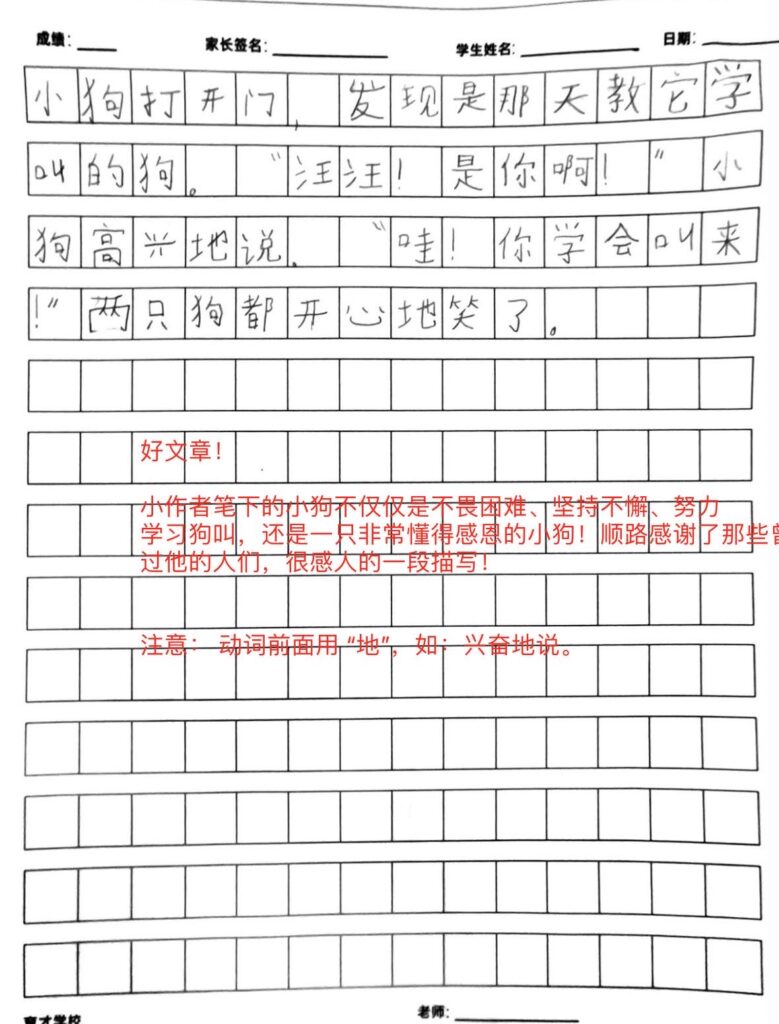 成绩：
家长签名：
学生姓名：
日期：
小狗打开门，发现是那天教它学
叫的狗。“汪汪！是你啊！”小
狗高兴地说。“哇！你学会叫来
！”两只狗都开心地笑了。
好文章！
小作者笔下的小狗不仅仅是不畏困难、坚持不懈、努力
学习狗叫，还是一只非常懂得感恩的小狗！顺路感谢了那些
过他的人们，很感人的一段描写！
注意： 动词前面用 “地”，如：兴奋地说。
育才学校
老师：